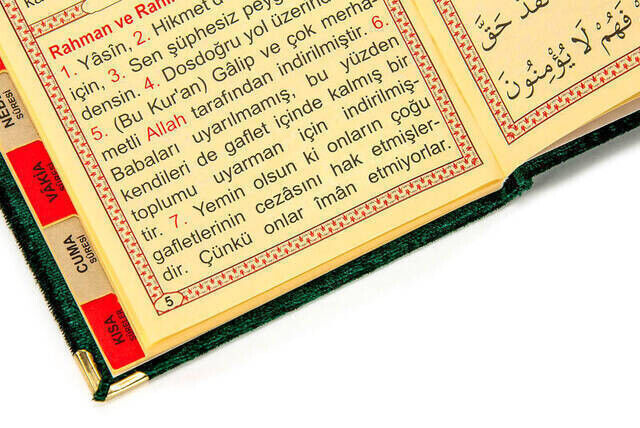 Rahman ve Rahî
1. Yâsîn, 2. Hikmet d
için, 3. Sen şüphesiz peyg
densin. 4. Dosdoğru yol üzerind
5. (Bu Kur'an) Gâlip ve çok merha-
metli Allah tarafından indirilmiştir. 6.
Babaları uyarılmamış, bu yüzden
kendileri de gaflet içinde kalmış bir
toplumu uyarman için indirilmiş-
tir. 7. Yemin olsun ki onların çoğu
gafletlerinin cezâsını hak etmişler-
dir. Çünkü onlar îmân etmiyorlar.
5
SÛRESİ
VÂKIA
SÛRESİ
CUMA
SÛRESİ
KISA
SÛRELER
حَقَّ
فَهُمْ لَا يُؤْمِنُونَ